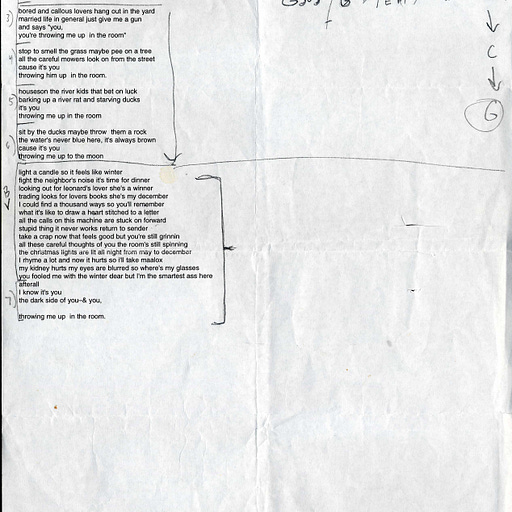 3)
bored and callous lovers hang out in the yard
married life in general just give me a gun
and says "you,
you're throwing me up in the room"
stop to smell the grass maybe pee on a tree
all the careful mowers look on from the street
cause it's you
throwing him up in the room.
5)
houseson the river kids that bet on luck
barking up a river rat and starving ducks
it's you
throwing me up in the room
6)
sit by the ducks maybe throw them a rock
the water's never blue here, it's always brown
cause it's you
throwing me up to the moon
light a candle so it feels like winter
fight the neighbor's noise it's time for dinner
looking out for leonard's lover she's a winner
trading looks for lovers books she's my december
I could find a thousand ways so you'll remember
what it's like to draw a heart stitched to a letter
all the calls on this machine are stuck on forward
stupid thing it never works return to sender
take a crap now that feels good but you're still grinnin
all these careful thoughts of you the room's still spinning
the christmas lights are lit all night from may to december
I rhyme a lot and now it hurts so i'll take maalox
my kidney hurts my eyes are blurred so where's my glasses
you fooled me with the winter dear but I'm the smartest ass here
afterall
I know it's you
the dark side of you--& you,
throwing me up in the room.
C
G